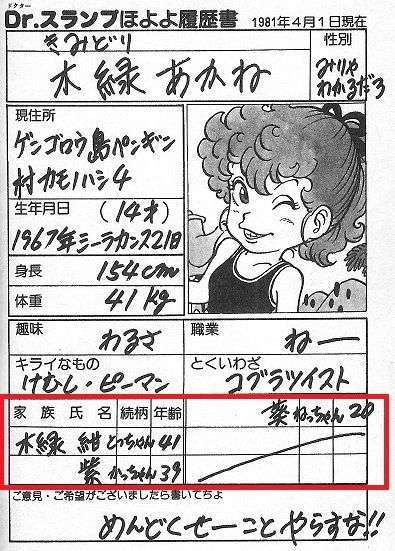 ドクター
Dr.スランプほよよ履歴書 1981年4月1日現在
きみどり
木緑 あかね
性別
みりゃ
わかるだろ
現住所
ゲンゴロウ島ペンギン
村カモノハシ4
生年月日 (14才)
1967年シーラカンス21日
身長 154cm
体重 41kg
趣味 わるさ
職業 ねー
キライなもの
けむし・ピーマン
とくいわざ
コブラツイスト
家族氏名 続柄 年齢
木緑 紺 とっちゃん 41
紫 かっちゃん 39
葵 ねっちゃん 20
ご意見・ご希望がございましたら書いてちょ
めんどくせーこと やらすな!!